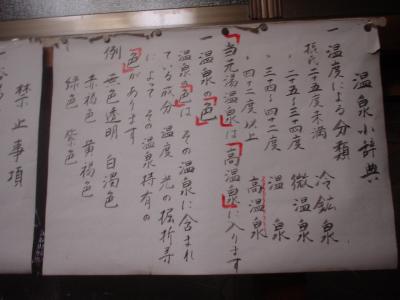 温泉小辞典
一 温度による分類
摂氏二十五度未満 冷鉱泉
〃 二十五〜三十四度 微温泉
〃 三十四〜四十二度 温泉
〃 四十二度以上 高温泉
当元湯温泉は「高温泉」に入ります
一 温泉の「色」
温泉色はその温泉に含まれ
ている成分 温度 光の屈折等
によって その温泉特有の
「色」があります
例 無色透明 白濁色
赤褐色 黄褐色
緑色 紫色
禁止事項
一